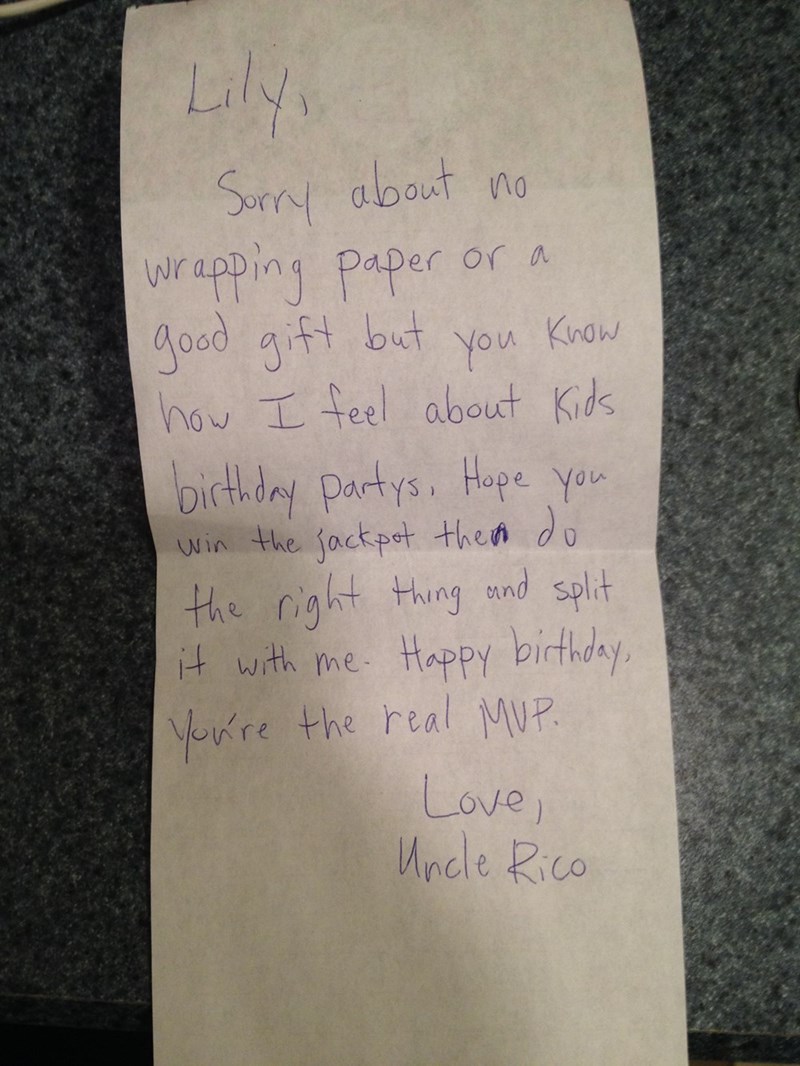 Lily,
Sorry about no
wrapping paper or a
good gift but you know
how I feel about kids
birthday partys. Hope you
win the jackpot then do
the right thing and split
it with me. Happy birthday,
You're the real MVP.
Love,
Uncle Rico